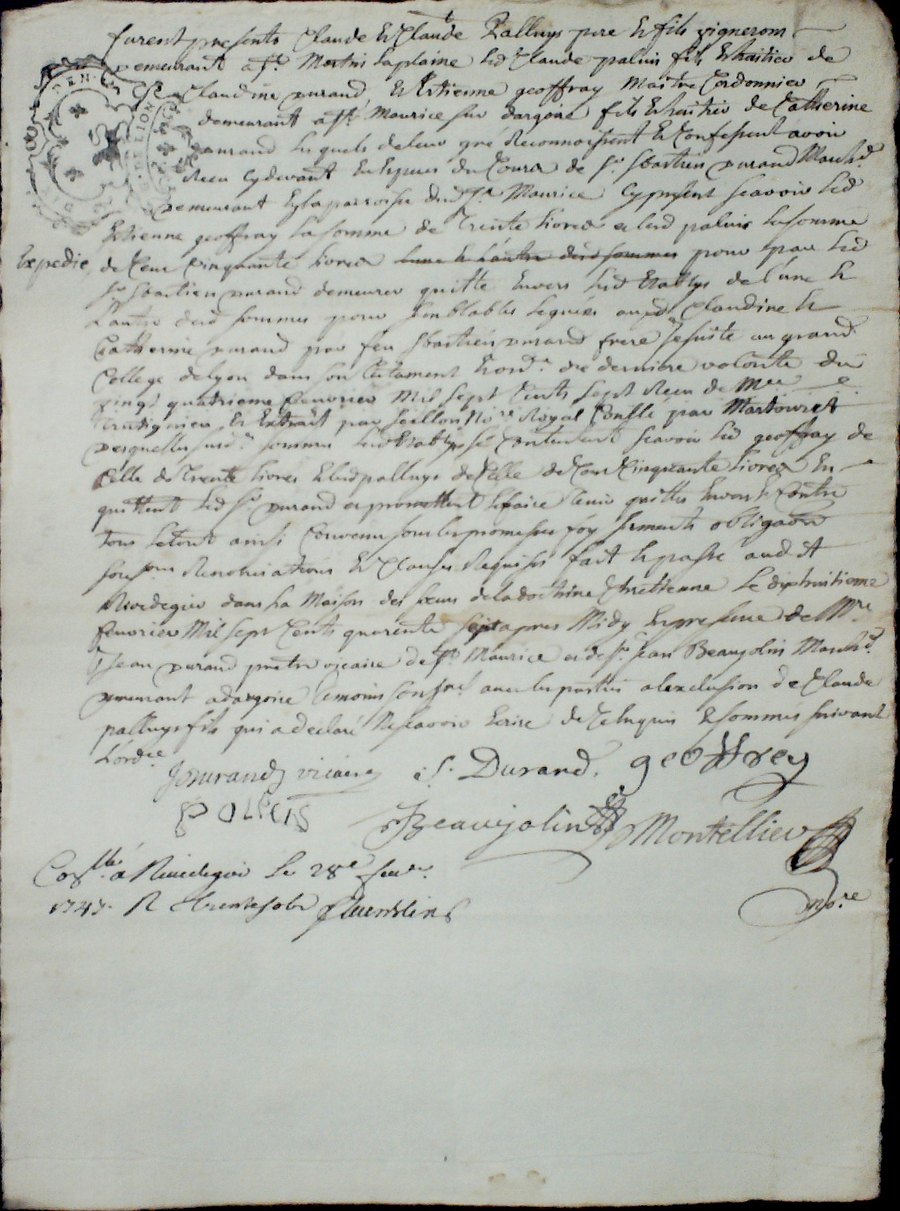 furent presents Claude et Claude Palluys pere et fils vignerons
demeurant a St. Martin laplaine led. Claude paluis fils heritier de
Claudine durand, et Estienne geoffray Maitre Cordonnier
demeurant a St. Maurice sur dargoire fils et heritier de Catherine
durand lesquels de leur gré Reconnoissent et Confessent avoir
Receu cydevant en Especes du Cours de Sr. Sbastien durand Marchd.
demeurant en la parroisse dud. St. Maurice cy present scavoir led.
Estienne geoffray la somme de Trente livres et led. paluis la somme
Expedié
de Cent Cinquante livres lune et lautre desd. sommes pour par led.
Sr. Sbastien durand demeurer quitte Envers lesd. Etablys de l'une et
Lautre desd. sommes pour semblables leguées auxd. Claudine et
Catherine durand par feu Sbastien durand frere Jesuite au grand
College de Lyon dans son Testament et ord. de derniere volonté du
vingt quatrieme fevrier Mil sept Cents sept Receu de Mre.
et Extrait par Nre. Royal par
desquelles sommes se Contentent scavoir led. geoffray de
Celle de Trente livres et led. palluys de Celle de Cent Cinquante livres En
quittent led. Sr. durand et promettent le faire tenir quitte Envers et Contre
Tous le tout ainsi Convenu sous les promesses foy serments obligaon.
soumons. Renonciations et Clauses Requises fait et passé aud.
Rivedegier dans la Maison des soeurs de la doctrine Chretienne Le dixhuitieme
fevrier Mil sept Cents quarente sept apres Midy En presence de Mre.
Jean durand pretre vicaire de St. Maurice et de Sr. Jean Beaujolin Marchd.
demeurant a dargoire temoins avec les parties a lexclusion de Claude
palluys fils qui a declaré ne scavoir Ecrire de Ce Enquis et sommés suivant
L'ordce.
J Durand vicaire S. Durand. geoffrey
POLUIS
J Beaujolin Montellier
Collé. a Rivedegier Le 28e. fevr.
1747. R
nore.